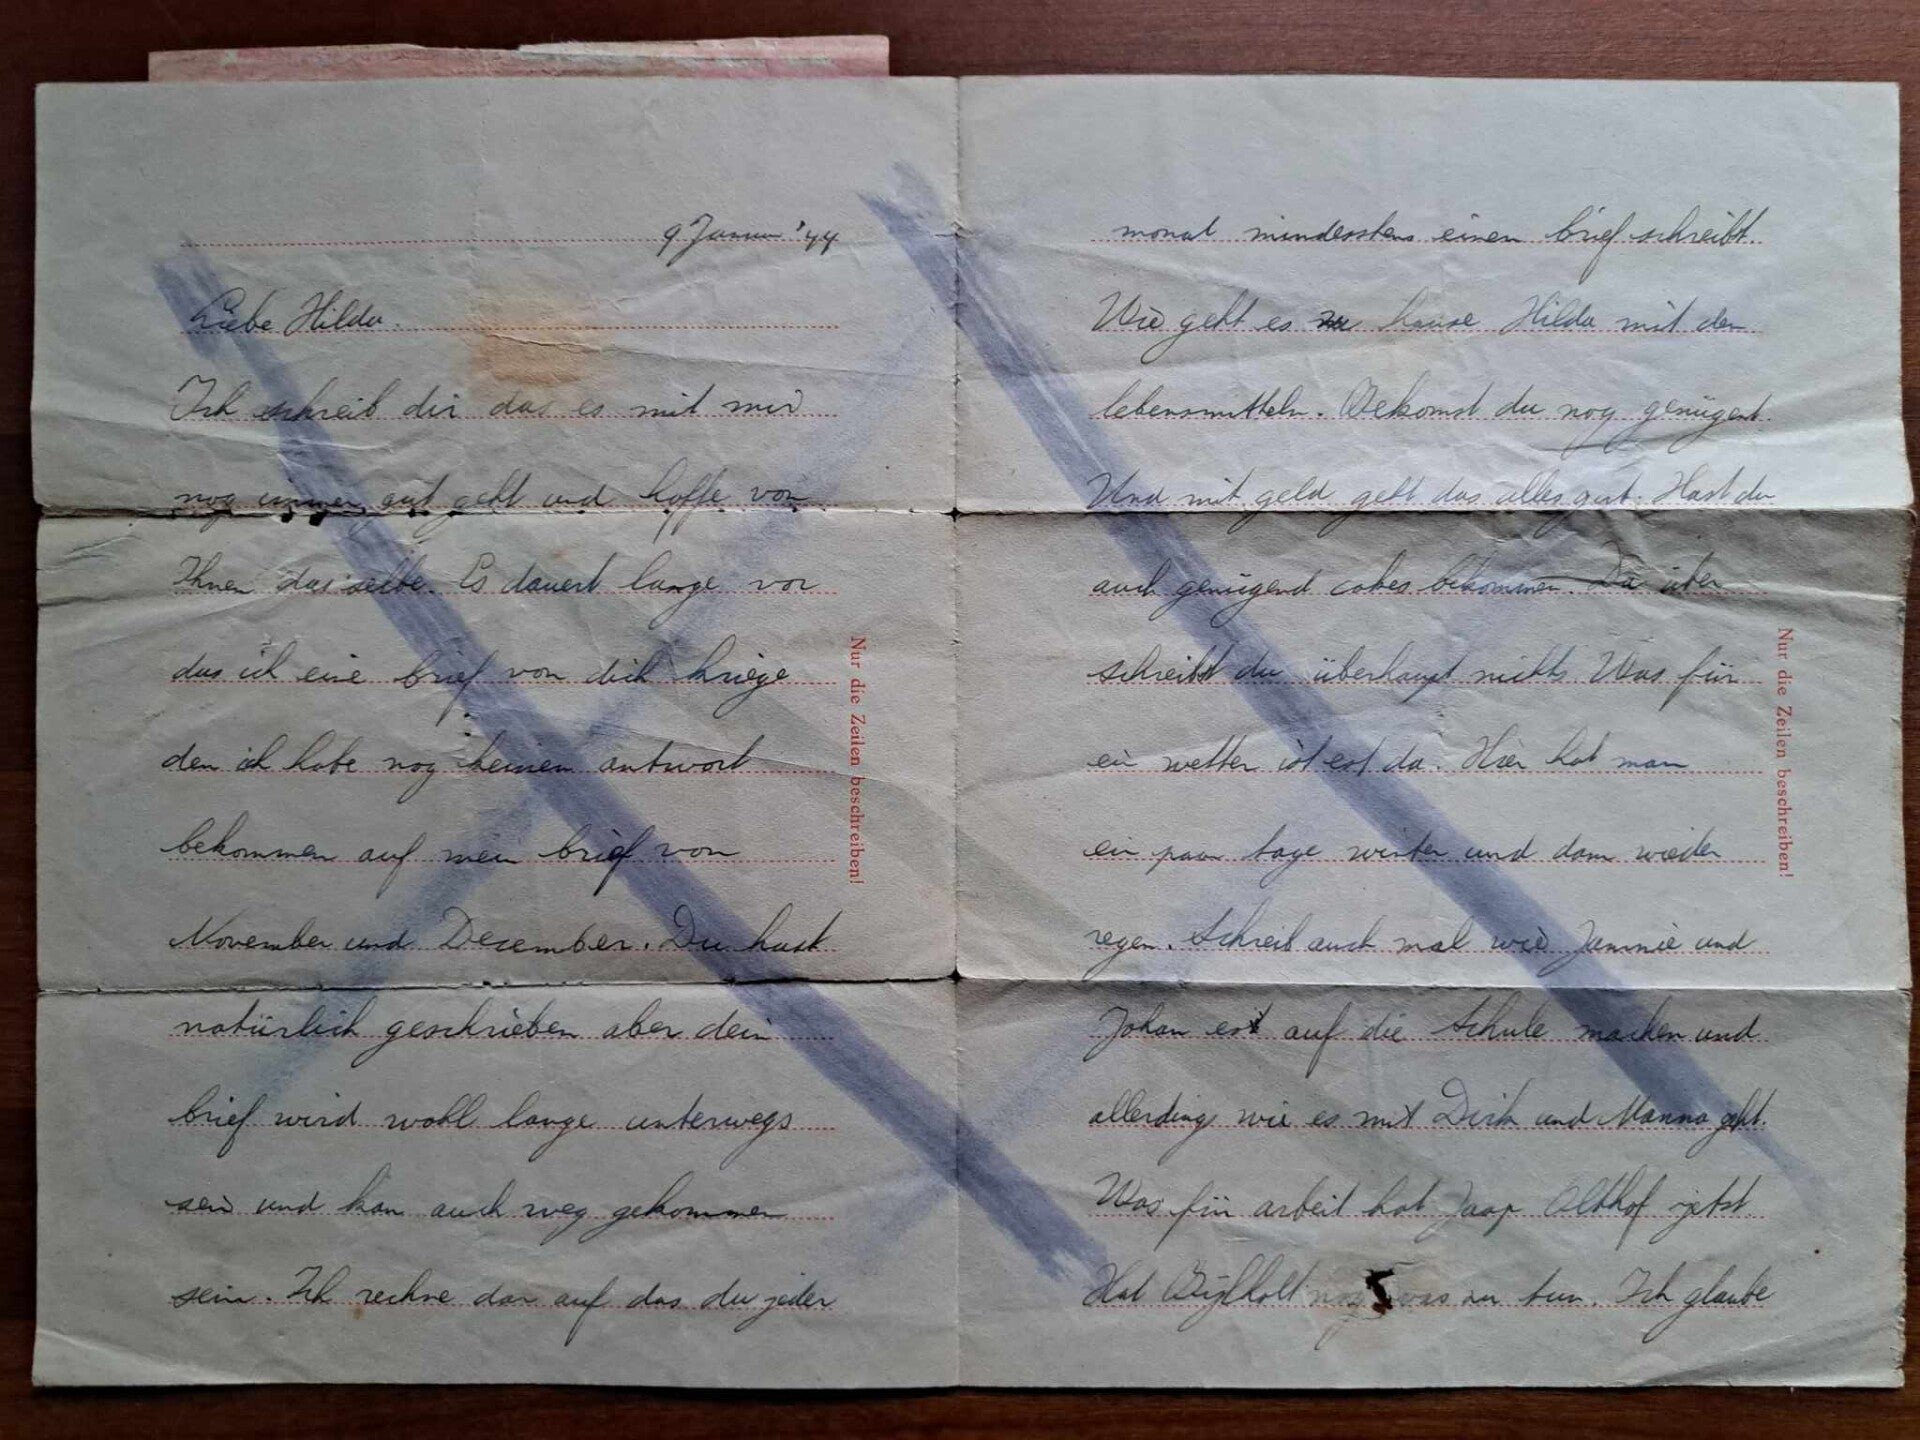 9 Januar '44
Liebe Hilda.
Ich schreib dir das es mit mir
nog immer gut geht und hoffe von
Ihnen das selbe. Es dauert lange vor
das ich eine brief von dich kriege
den ich habe nog keinen antwort
bekommen auf mein brief von
November und Desember. Du hast
natürlich geschrieben aber dein
brief wird wohl lange unterwegs
sein und kan auch weg gekommen
sein. Ich rechne dar auf das du jeder
Nur die Zeilen beschreiben!
monat mindesstens einen brief schreibt.
Wie geht es zu hause Hilda mit den
lebensmitteln. Bekomst du nog genügent.
Und mit geld geht das alles gut. Hast du
auch genügend cokes bekommen. Da über
schreibt du überhaupt nichts. Was für
ein wetter ist est da. Hier hat man
ein paar tage winter und dann wieder
regen. Schreib auch mal wie Jannie und
Johan est auf die Schule machen und
allerding wie es mit Dirk und Manna geht.
Was für arbeit hat Jaap Olthof jetst.
Hat nog was zu tun. Ich glaube
Nur die Zeilen beschreiben!